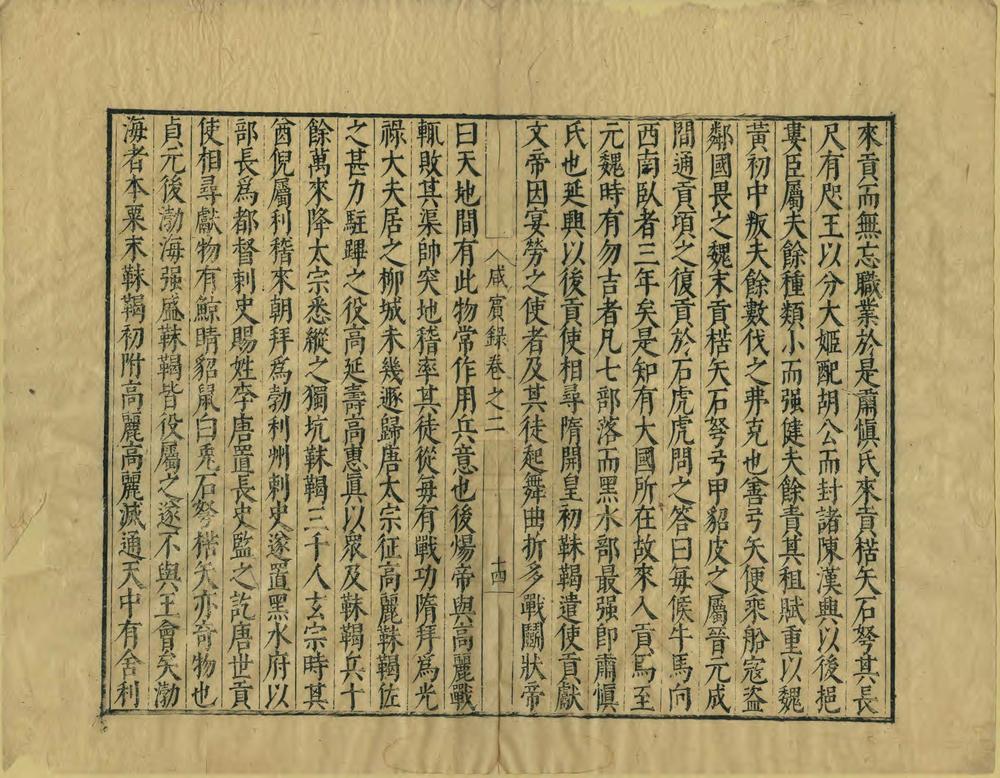 來貢而無忘職業於是肅愼氏來貢楛矢石砮其長
尺有咫王以分大姬配胡公而封諸陳漢興以後挹
婁臣屬夫餘種類小而强健夫餘責其租賦重以魏
黃初中叛夫餘數伐之弗克也善弓矢便乘船寇盗
鄰國畏之魏末貢楛矢石砮弓甲貂皮之屬晉元成
間通貢頃之復貢於石虎虎問之答曰每候牛馬向
西南臥者三年矣是知有大國所在故來入貢焉至
元魏時有勿吉者凡七部落而黑水部最强卽肅愼
氏也延興以後貢使相尋隋開皇初靺鞨遣使貢獻
文帝因宴勞之使者及其徒起舞曲折多戰鬬狀帝
咸賓錄卷之二 十四
曰天地間有此物常作用兵意也後煬帝與高麗戰
輒敗其渠帥突地稽率其徒從每有戰功隋拜為光
祿大夫居之柳城未幾遯歸唐太宗征高麗靺鞨佐
之甚力駐蹕之役高延壽高惠眞以眾及靺鞨兵十
餘萬來降太宗悉縱之獨坑靺鞨三千人玄宗時其
酋倪屬利稽來朝拜為勃利州刺史遂置黑水府以
部長為都督刺史賜姓李唐置長史監之訖唐世貢
使相尋獻物有鯨睛貂鼠白兎石砮楛矢亦竒物也
貞元後渤海强盛靺鞨皆役屬之遂不與王會矣渤
海者本粟末靺鞨初附高麗高麗滅通天中有舍利